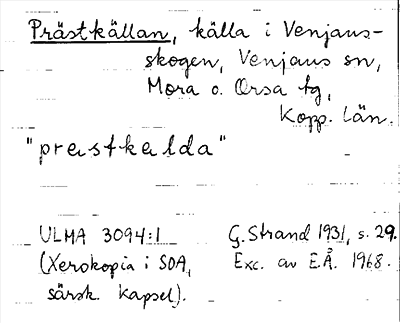 Prästkällan, källa i Venjans-
skogen, Venjans sn,
Mora o. Orsa tg,
Kopp. län.
"præstkælda"
ULMA 3094:1 G. Strand 1931, s. 29.
(Xerokopia i SOA, Exc. av E.Å. 1968.
särsk. kapsel).